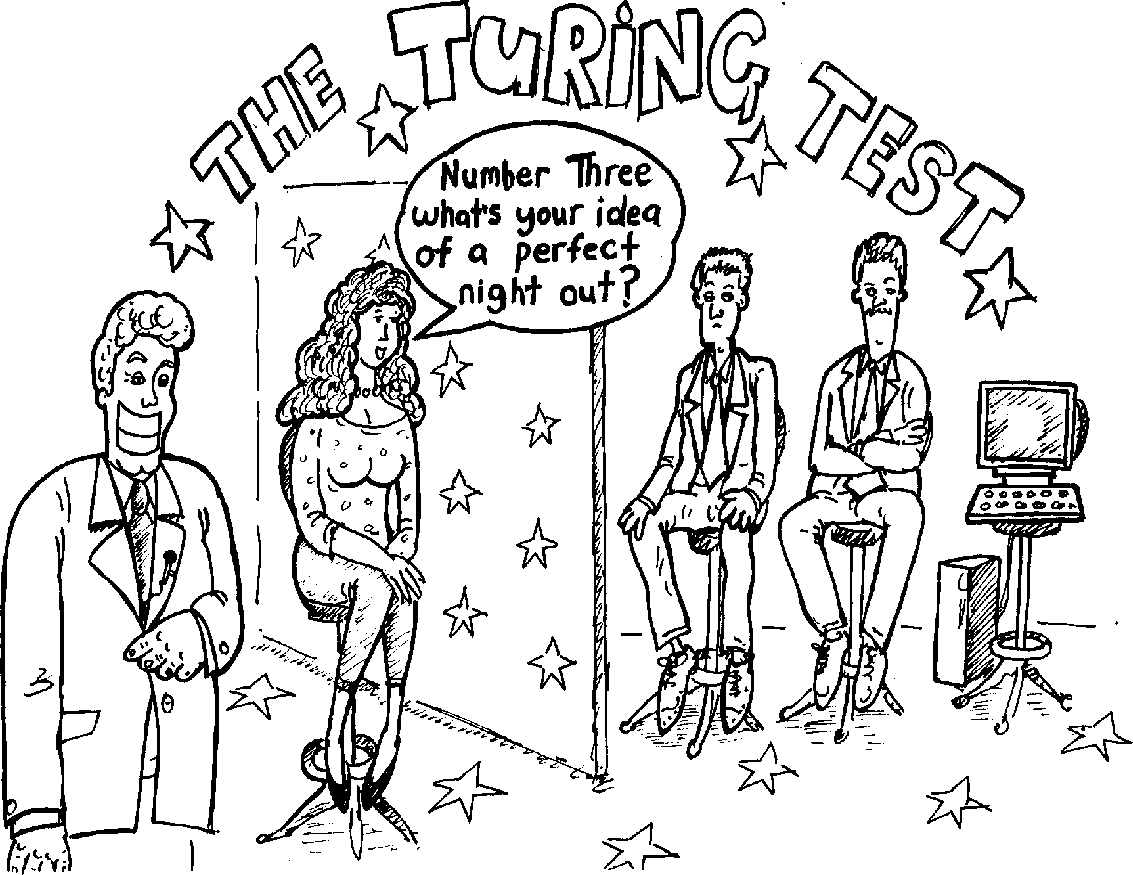 THE TURING TEST
Number Three
what's your idea
of a perfect
night out?